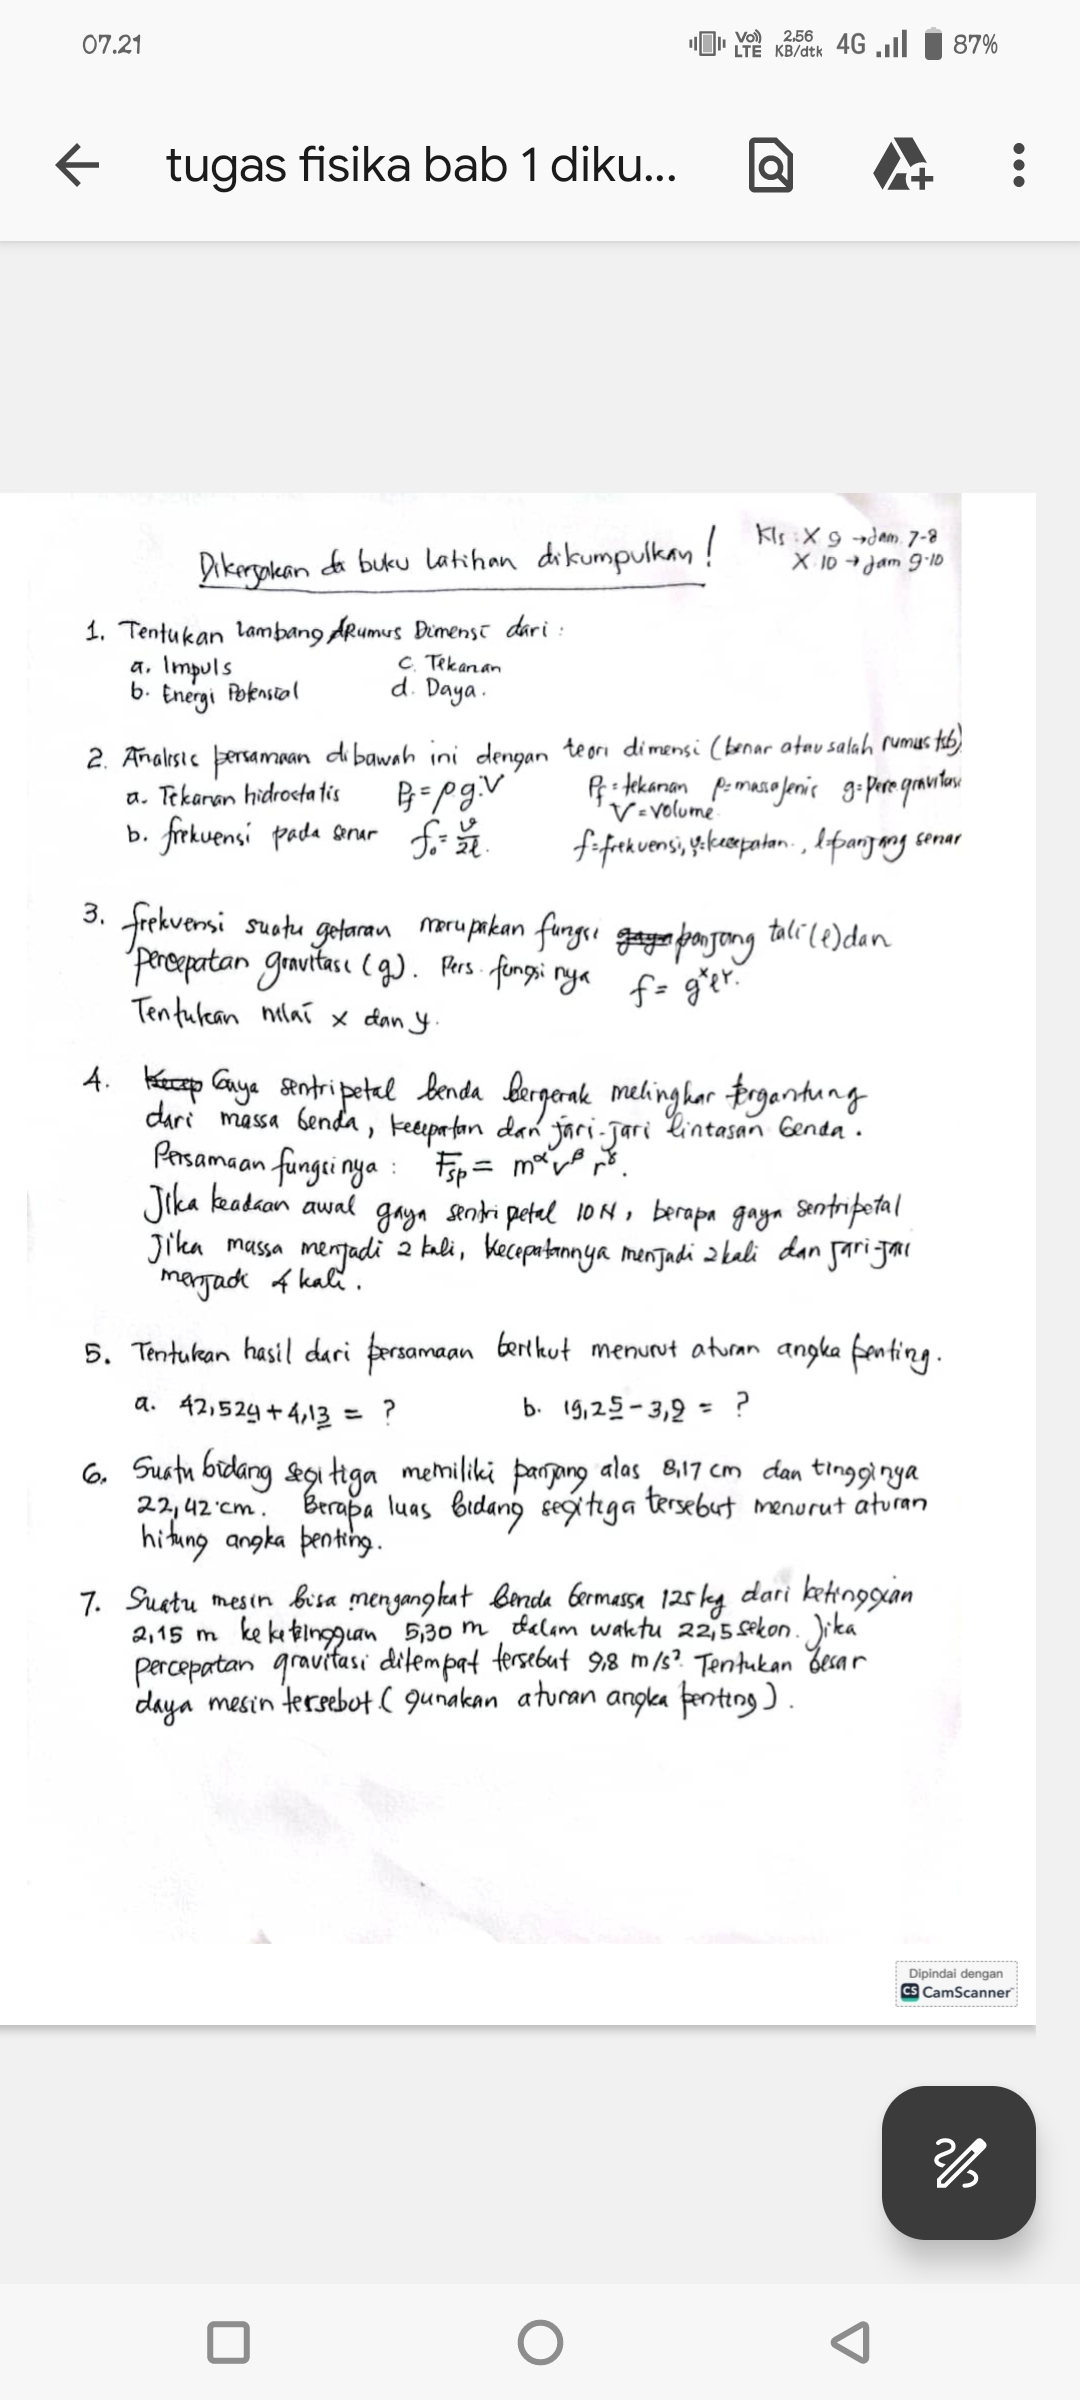 07.21
Vo) LTE 2.56 KB/dtk 4G 87%
tugas fisika bab 1 diku...
Kls : X 9 → Jam 7-8
X 10 → Jam 9-10
Dikerjakan di buku latihan dikumpulkan !
1. Tentukan lambang Rumus Dimensi dari :
a. Impuls c. Tekanan
b. Energi Potensial d. Daya.
2. Analisis persamaan dibawah ini dengan teori dimensi (benar atau salah rumus tsb)
a. Tekanan hidrostatis = ρ g.V = tekanan ρ= massa jenis g= Perc gravitasi
V = volume
b. frekuensi pada senar f₀ = v/2l. f=frekuensi, v=kecepatan., l=panjang senar
3. frekuensi suatu getaran merupakan fungsi panjang tali (l) dan
percepatan gravitasi (g). Pers. fungsi nya f = gˣ lʸ.
Tentukan nilai x dan y.
4. Gaya sentripetal benda bergerak melingkar tergantung
dari massa benda, kecepatan dan jari-jari lintasan benda.
Persamaan fungsi nya : Fsp = mᵅ vᵝ rᵟ.
Jika keadaan awal gaya sentripetal 10 N, berapa gaya sentripetal
Jika massa menjadi 2 kali, kecepatannya menjadi 2 kali dan jari-jari
menjadi 4 kali.
5. Tentukan hasil dari persamaan berikut menurut aturan angka penting.
a. 42,524 + 4,13 = ? b. 19,25 - 3,9 = ?
6. Suatu bidang segi tiga memiliki panjang alas 8,17 cm dan tingginya
22,42 cm. Berapa luas bidang segitiga tersebut menurut aturan
hitung angka penting.
7. Suatu mesin bisa mengangkat benda bermassa 125 kg dari ketinggian
2,15 m ke ketinggian 5,30 m dalam waktu 22,5 sekon. Jika
percepatan gravitasi ditempat tersebut 9,8 m/s². Tentukan besar
daya mesin tersebut ( gunakan aturan angka penting ) .
Dipindai dengan
CS CamScanner